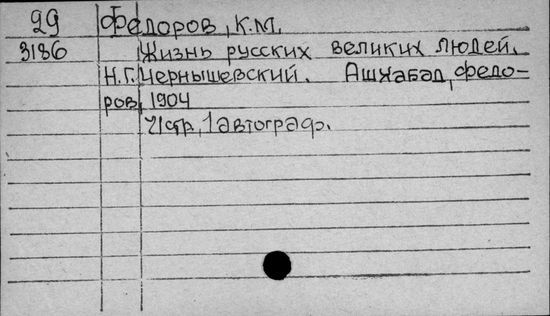 29 Федоров, К.М.
3186 Жизнь русских великих людей.
Н.Г. Чернышевский. Ашхабад, Федо-
ров, 1904
71стр, 1 автограф.